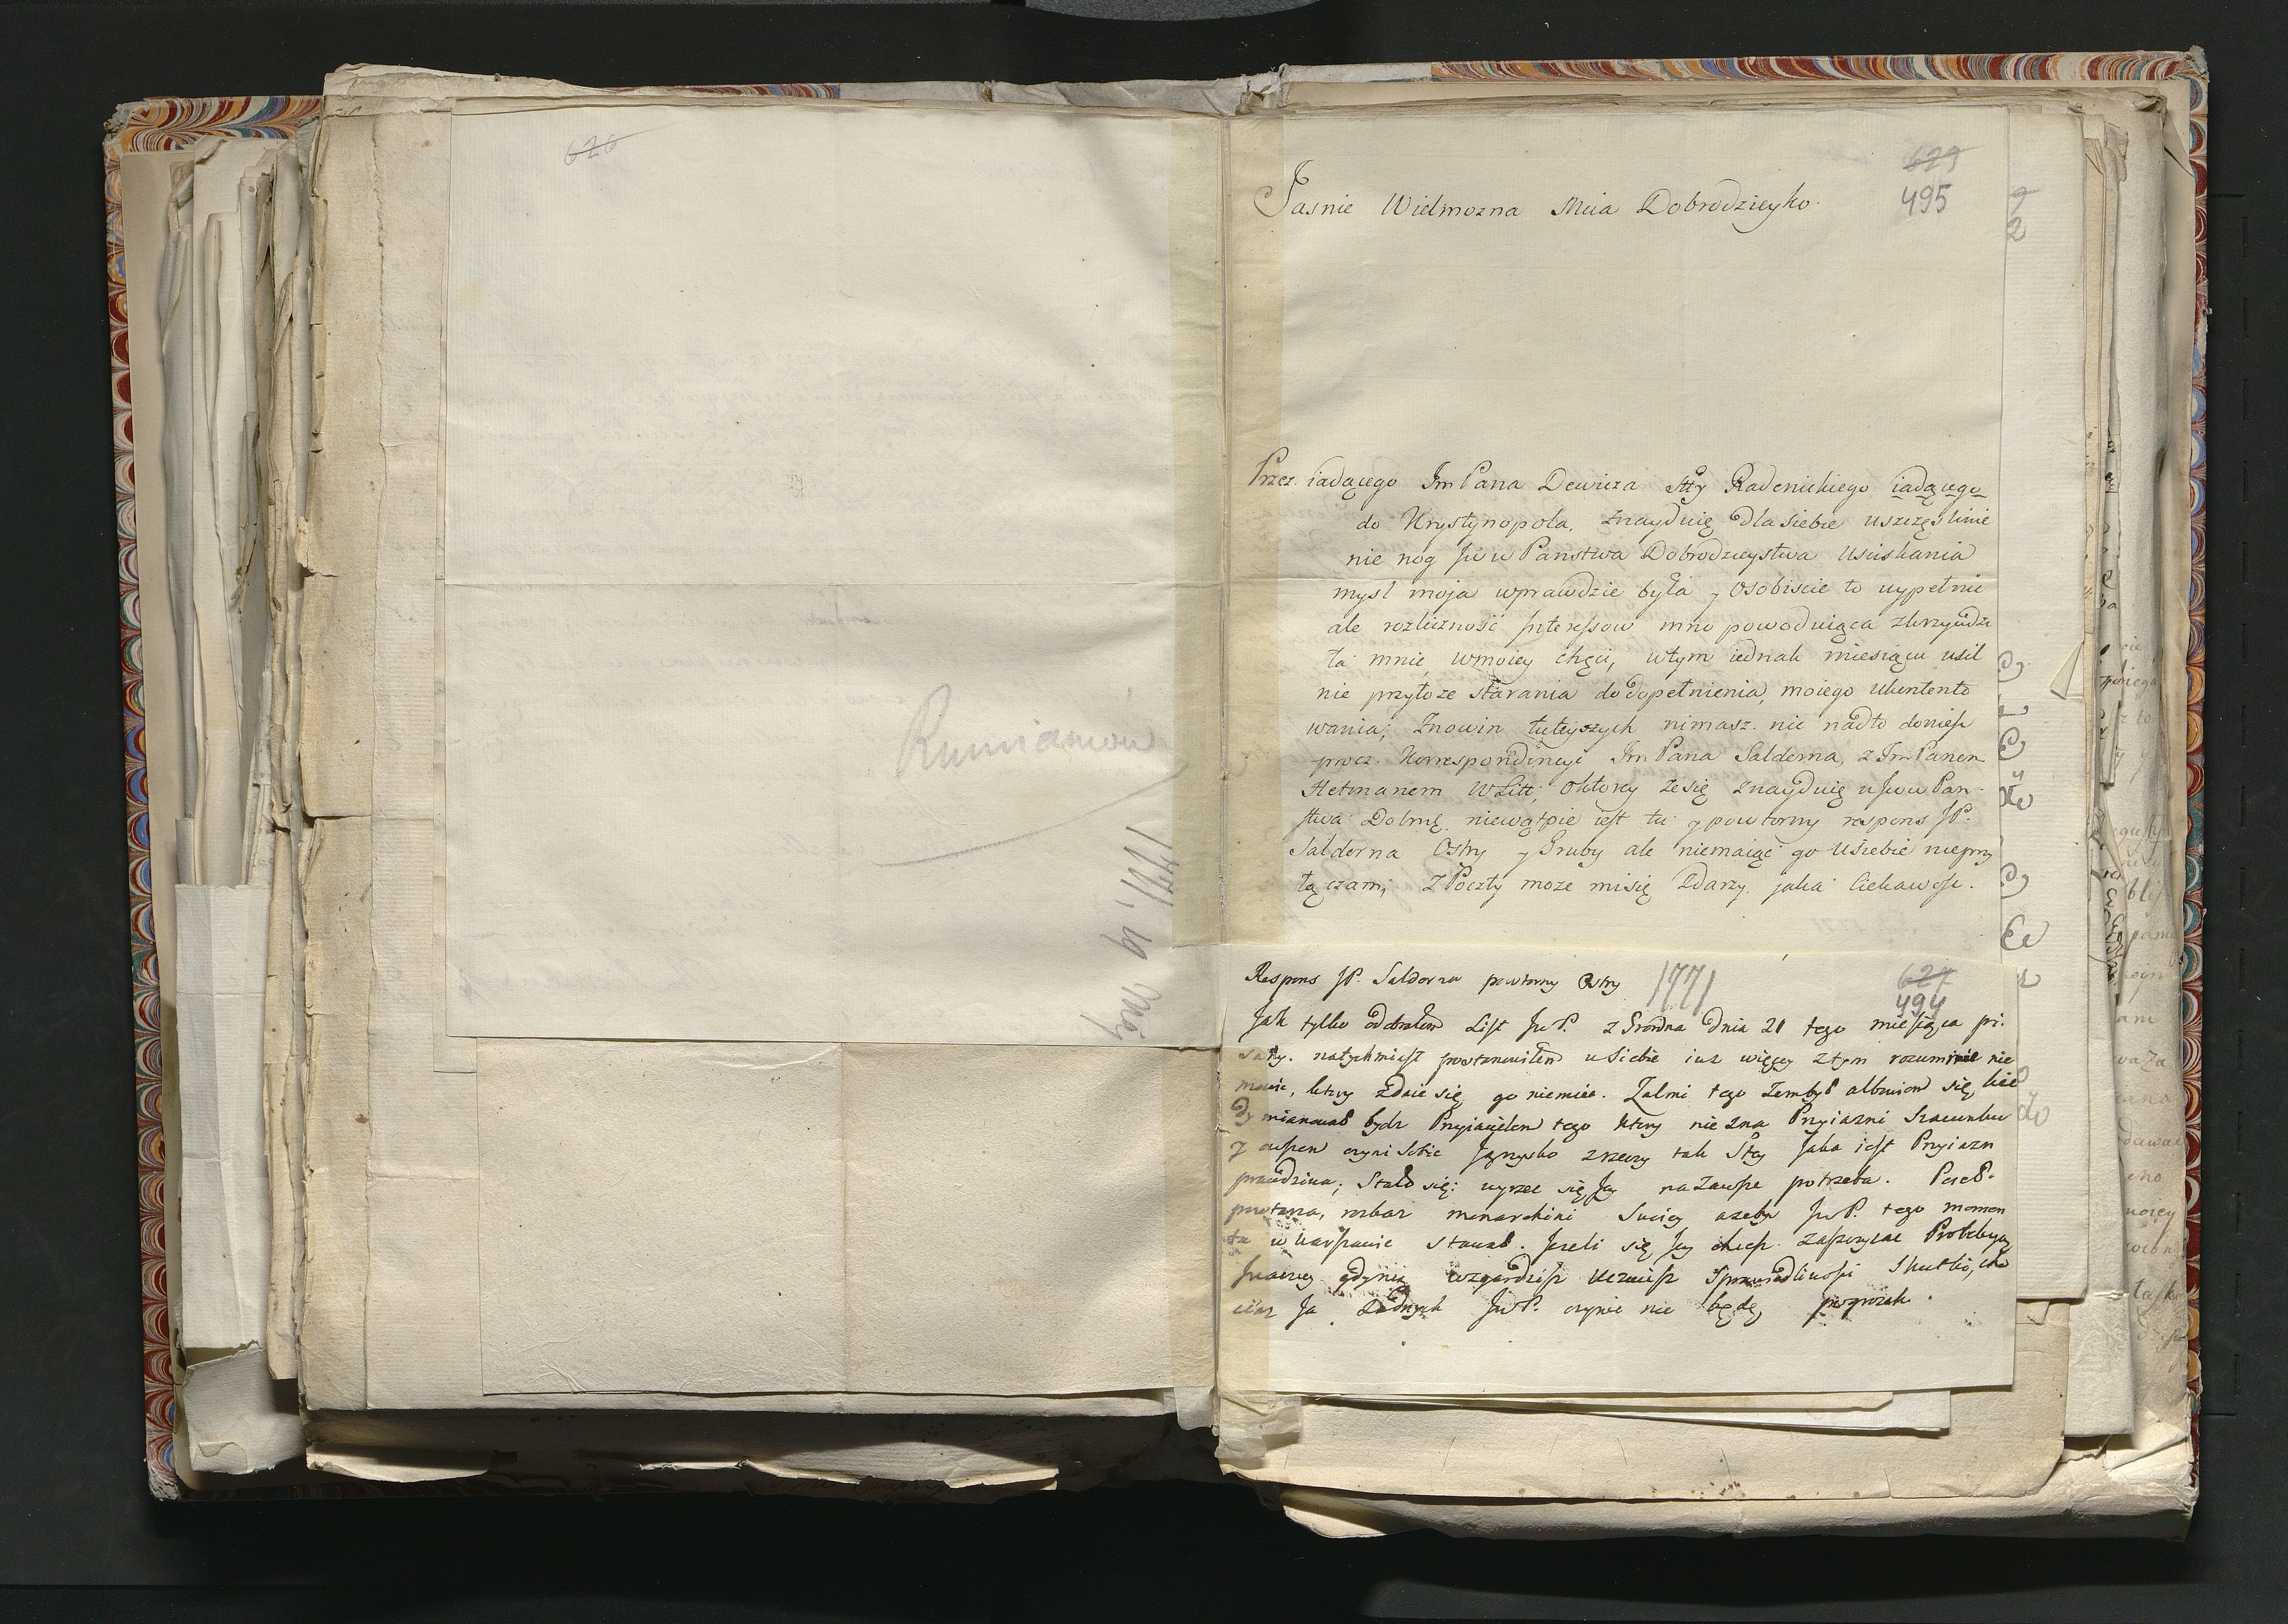 626
Rumiancow
1771, 19 Maj
629
495
Jasnie Wielmozna Mcia Dobrodzieyko
Przez iadącego Jm Pana Dewicza Stty Radenickiego iadącego
do Krystynopola, znayduię dla siebie uszczęsliwie
nie nog Jww Panstwa Dobrodzieystwa usciskania
mysl moja wprawdzie była y osobiscie to wypełnic
ale rozlicznosc Interessow mno powoduiąca zkrzywdzi
ła mnie w moiey chęci, w tym iednak miesiącu usil
nie przyłoze starania do dopełnienia moiego ukontento
wania; Znowin tuteyszych nimasz. nic nadto doniesc
procz. Korrespondencyi Jm Pana Salderna, z Jm Panem
Hetmanem WLitt; oktorey ze się znayduię u Jww Pan-
stwa Dobrné niewątpie iest tu y powtorny respons JP.
Salderna Ostry y Gruby ale niemaiąc go u siebie nieprzy
łączam; Z Poczty moze mi się zdarzy jaka ciekawosc.
Respons JP. Salderna powtorny Ostry
1771
627
494
Jak tylko odebrałem List JwP. z Grodna dnia 21 tego miesiąca pi.
sany. natychmiast postanowiłem u Siebie iuz więcey z tym rozumienie nie
miec, ktory zdaie się go niemiec. Zalmi tego
mianował bydz Przyiacielem tego ktory nie zna Przyiazni Szacunku
y czyni Sobie Jgrzysko z rzeczy tak Stey Jaka iest Przyiazn
prawdziwa; Stało się: wyrzec się Jey na Zawsze potrzeba.
rozkaz monarchini Swoiey azeby JwP. tego momen
tu w Warszawie stawał. Jezeli się Jey chcesz
Jnaczey gdy nią wzgardzisz uczuiesz Sprawiedliwosci Skutki, cho
ciaz Ja zadnych JwP. czynic nie będę pogrozek.